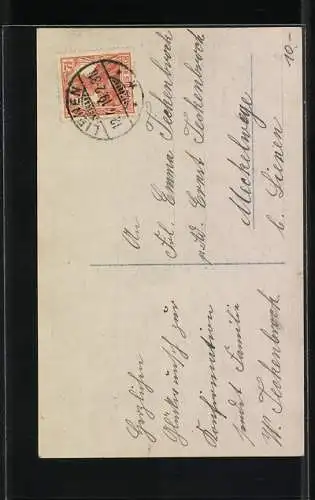 10.-
LIENEN
An
Frl. Emma Teckenbrock
p. Ad. Ernst Teckenbrock
Meckelwege
b. Lienen
Herzlichen
Glückwunsch zur
Konfirmation
sendet Familie
W. Teckenbrock.